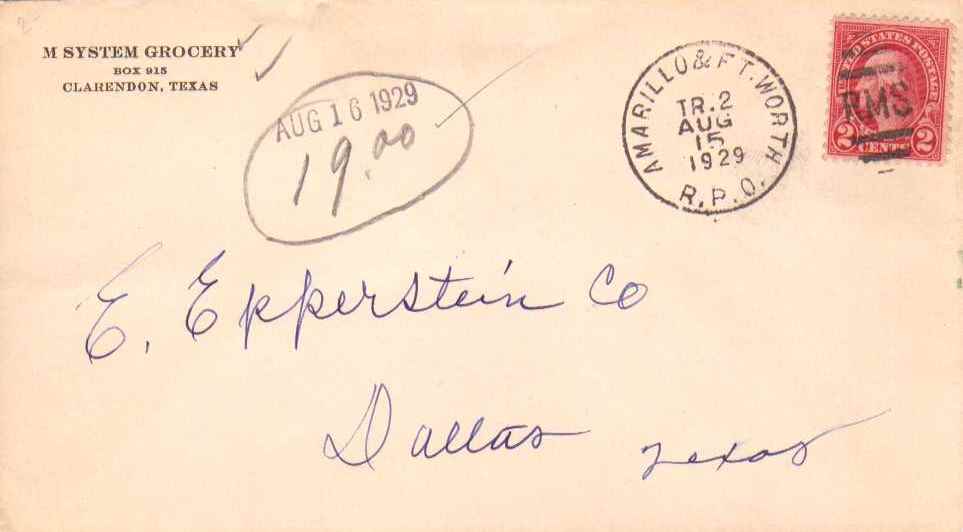 M SYSTEM GROCERY
BOX 915
CLARENDON, TEXAS
AUG 16 1929
19.00
AMARILLO & FT. WORTH
TR. 2
AUG
15
1929
R.P.O.
UNITED STATES POSTAGE
RMS
2 CENTS 2
E. Epperstein Co
Dallas Texas